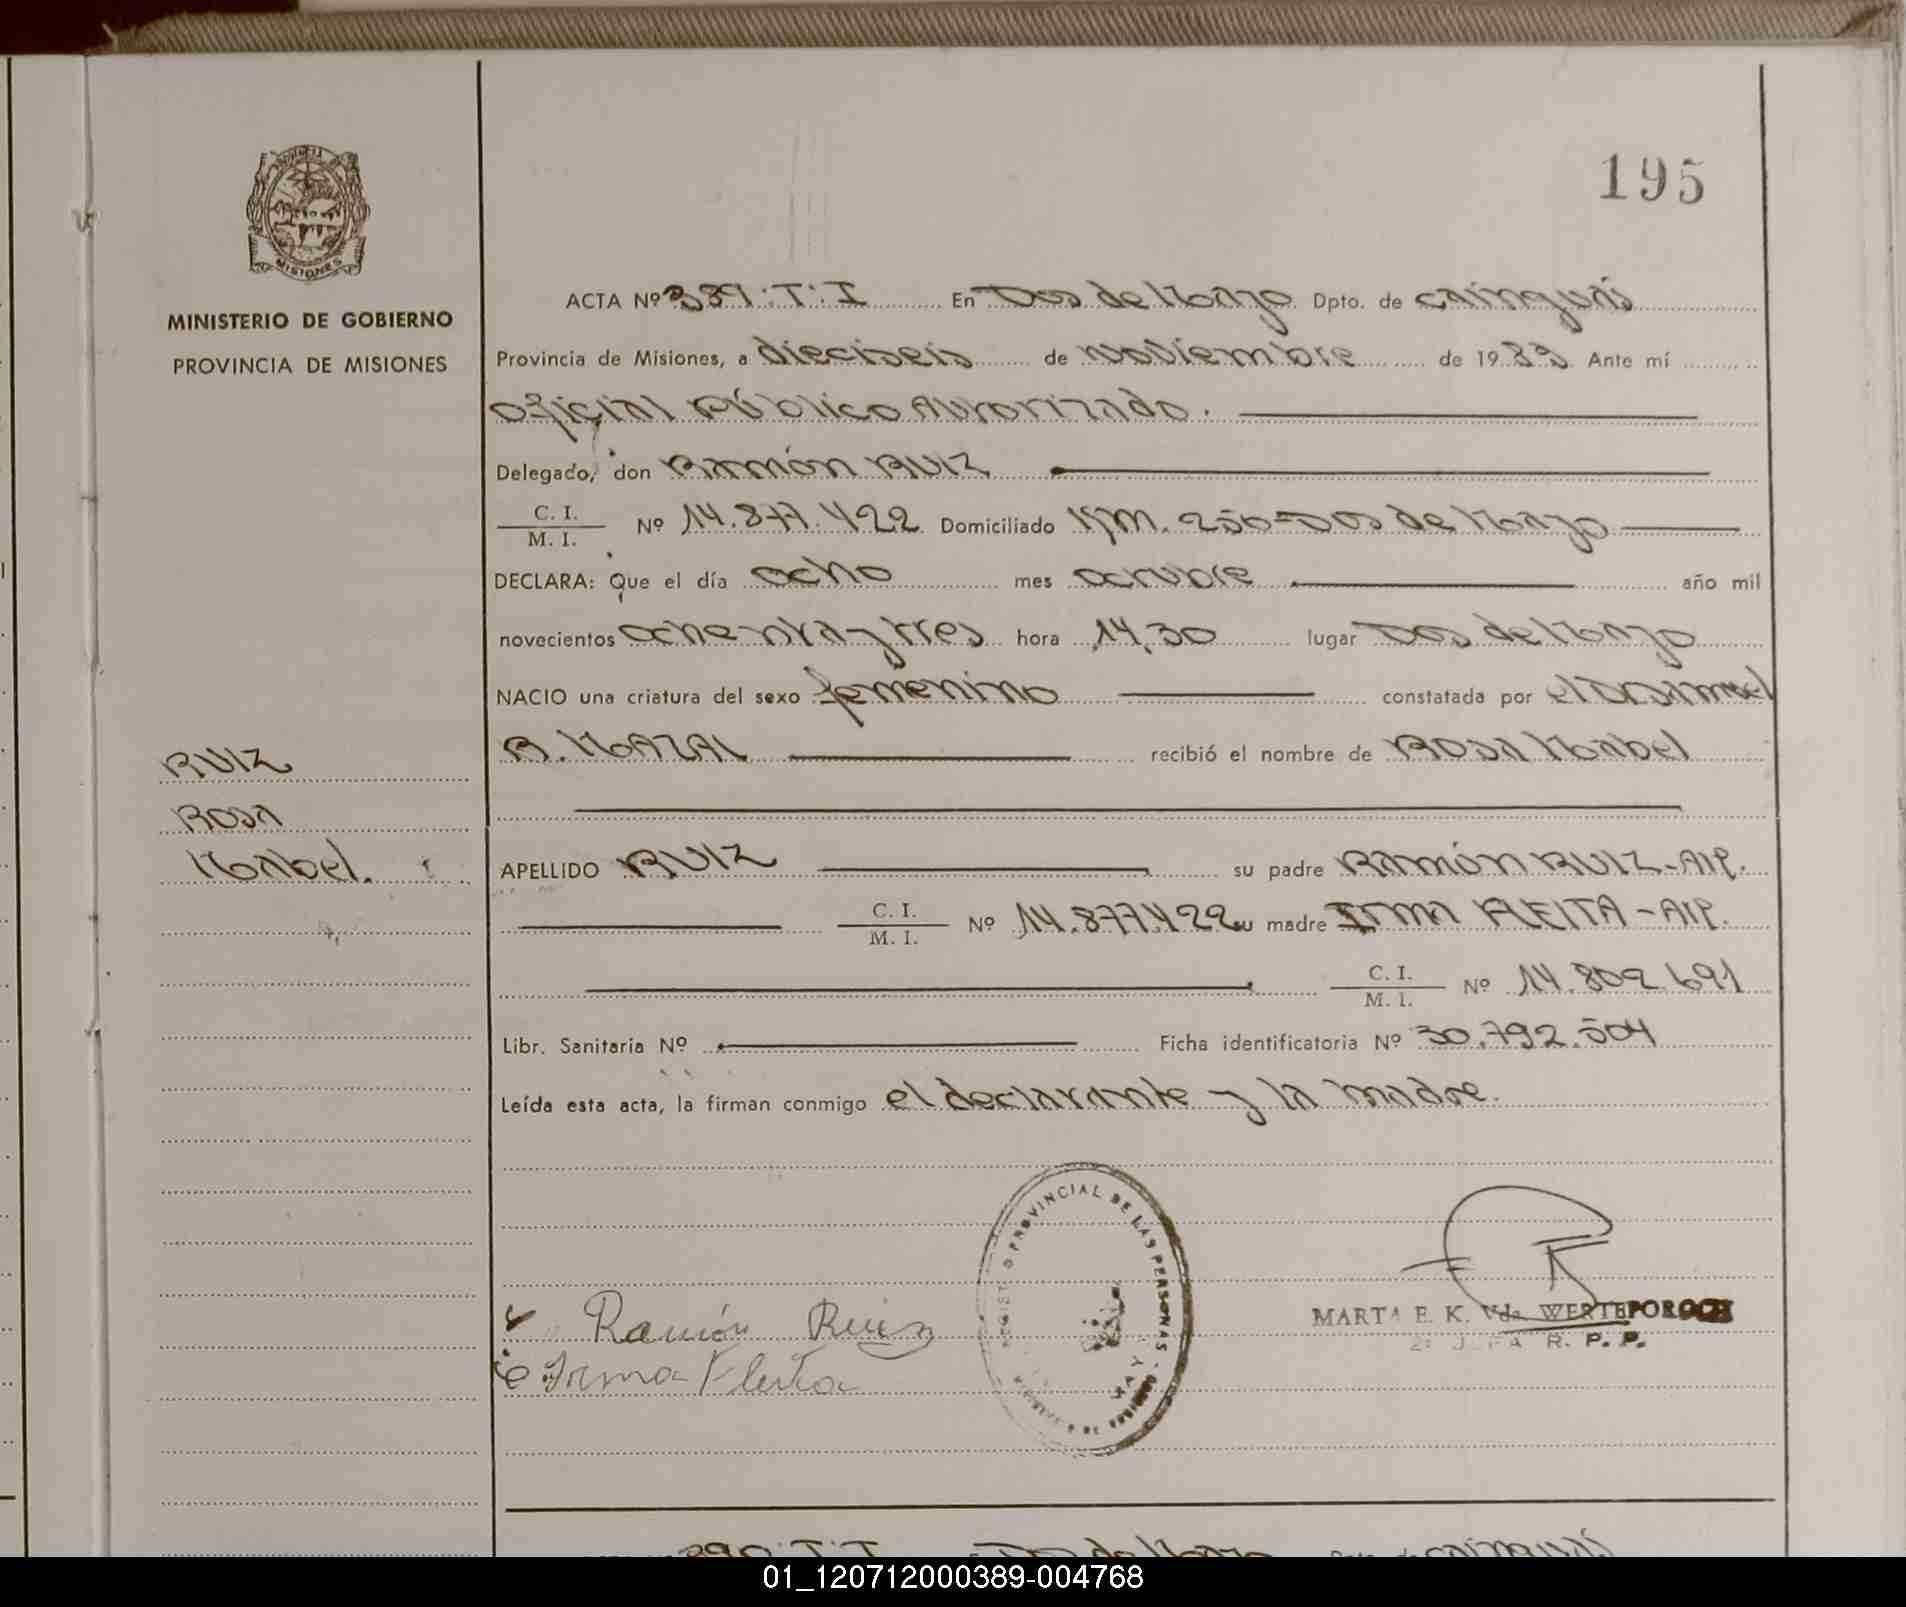 195
MINISTERIO DE GOBIERNO
PROVINCIA DE MISIONES
ACTA Nº 389.T.I En Dos de Mayo Dpto. de Cainguás
Provincia de Misiones, a dieciseis de noviembre de 1983 Ante mí
Oficial Público Autorizado.
Delegado, don Ramón RUIZ
C. I. / M. I. Nº 14.877.422 Domiciliado Km. 250-Dos de Mayo
DECLARA: Que el día ocho mes octubre año mil
novecientos ochenta y tres hora 14,30 lugar Dos de Mayo
NACIO una criatura del sexo femenino constatada por el
R. MAZAL recibió el nombre de Rosa Mabel
RUIZ
Rosa
Mabel.
APELLIDO RUIZ su padre Ramón RUIZ-Arg.
C. I. / M. I. Nº 14.877.422 su madre Irma FLEITA-Arg.
C. I. / M. I. Nº 14.802.691
Libr. Sanitaria Nº Ficha identificatoria Nº 30.792.504
Leída esta acta, la firman conmigo el declarante y la madre.
PROVINCIAL DE LAS PERSONAS
Ramón Ruiz
Irma Fleita
MARTA E. K. Vda. WERTEPOROCH
R. P. P.
390.T.I Dos de Mayo Cainguás
01_120712000389-004768